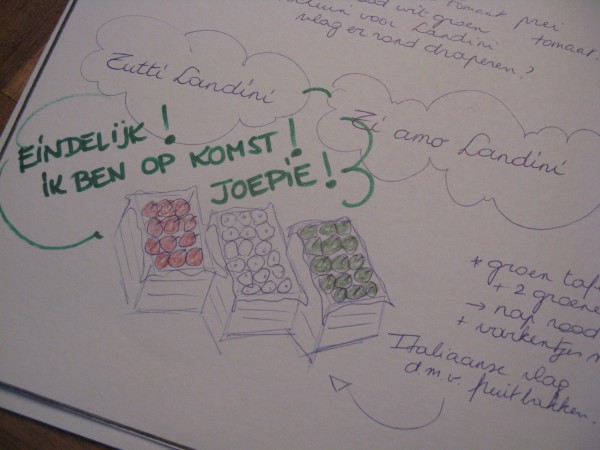 tomaat prei
rood wit groen tomaat.
voor Landini
vlag er rond draperen?
Tutti Landini
Ti amo Landini
EINDELIJK!
IK BEN OP KOMST!
JOEPIE!
* groen
+ 2 groene
→ rood
+ varkentjes
Italiaanse vlag
d.m.v. fruitbakken.